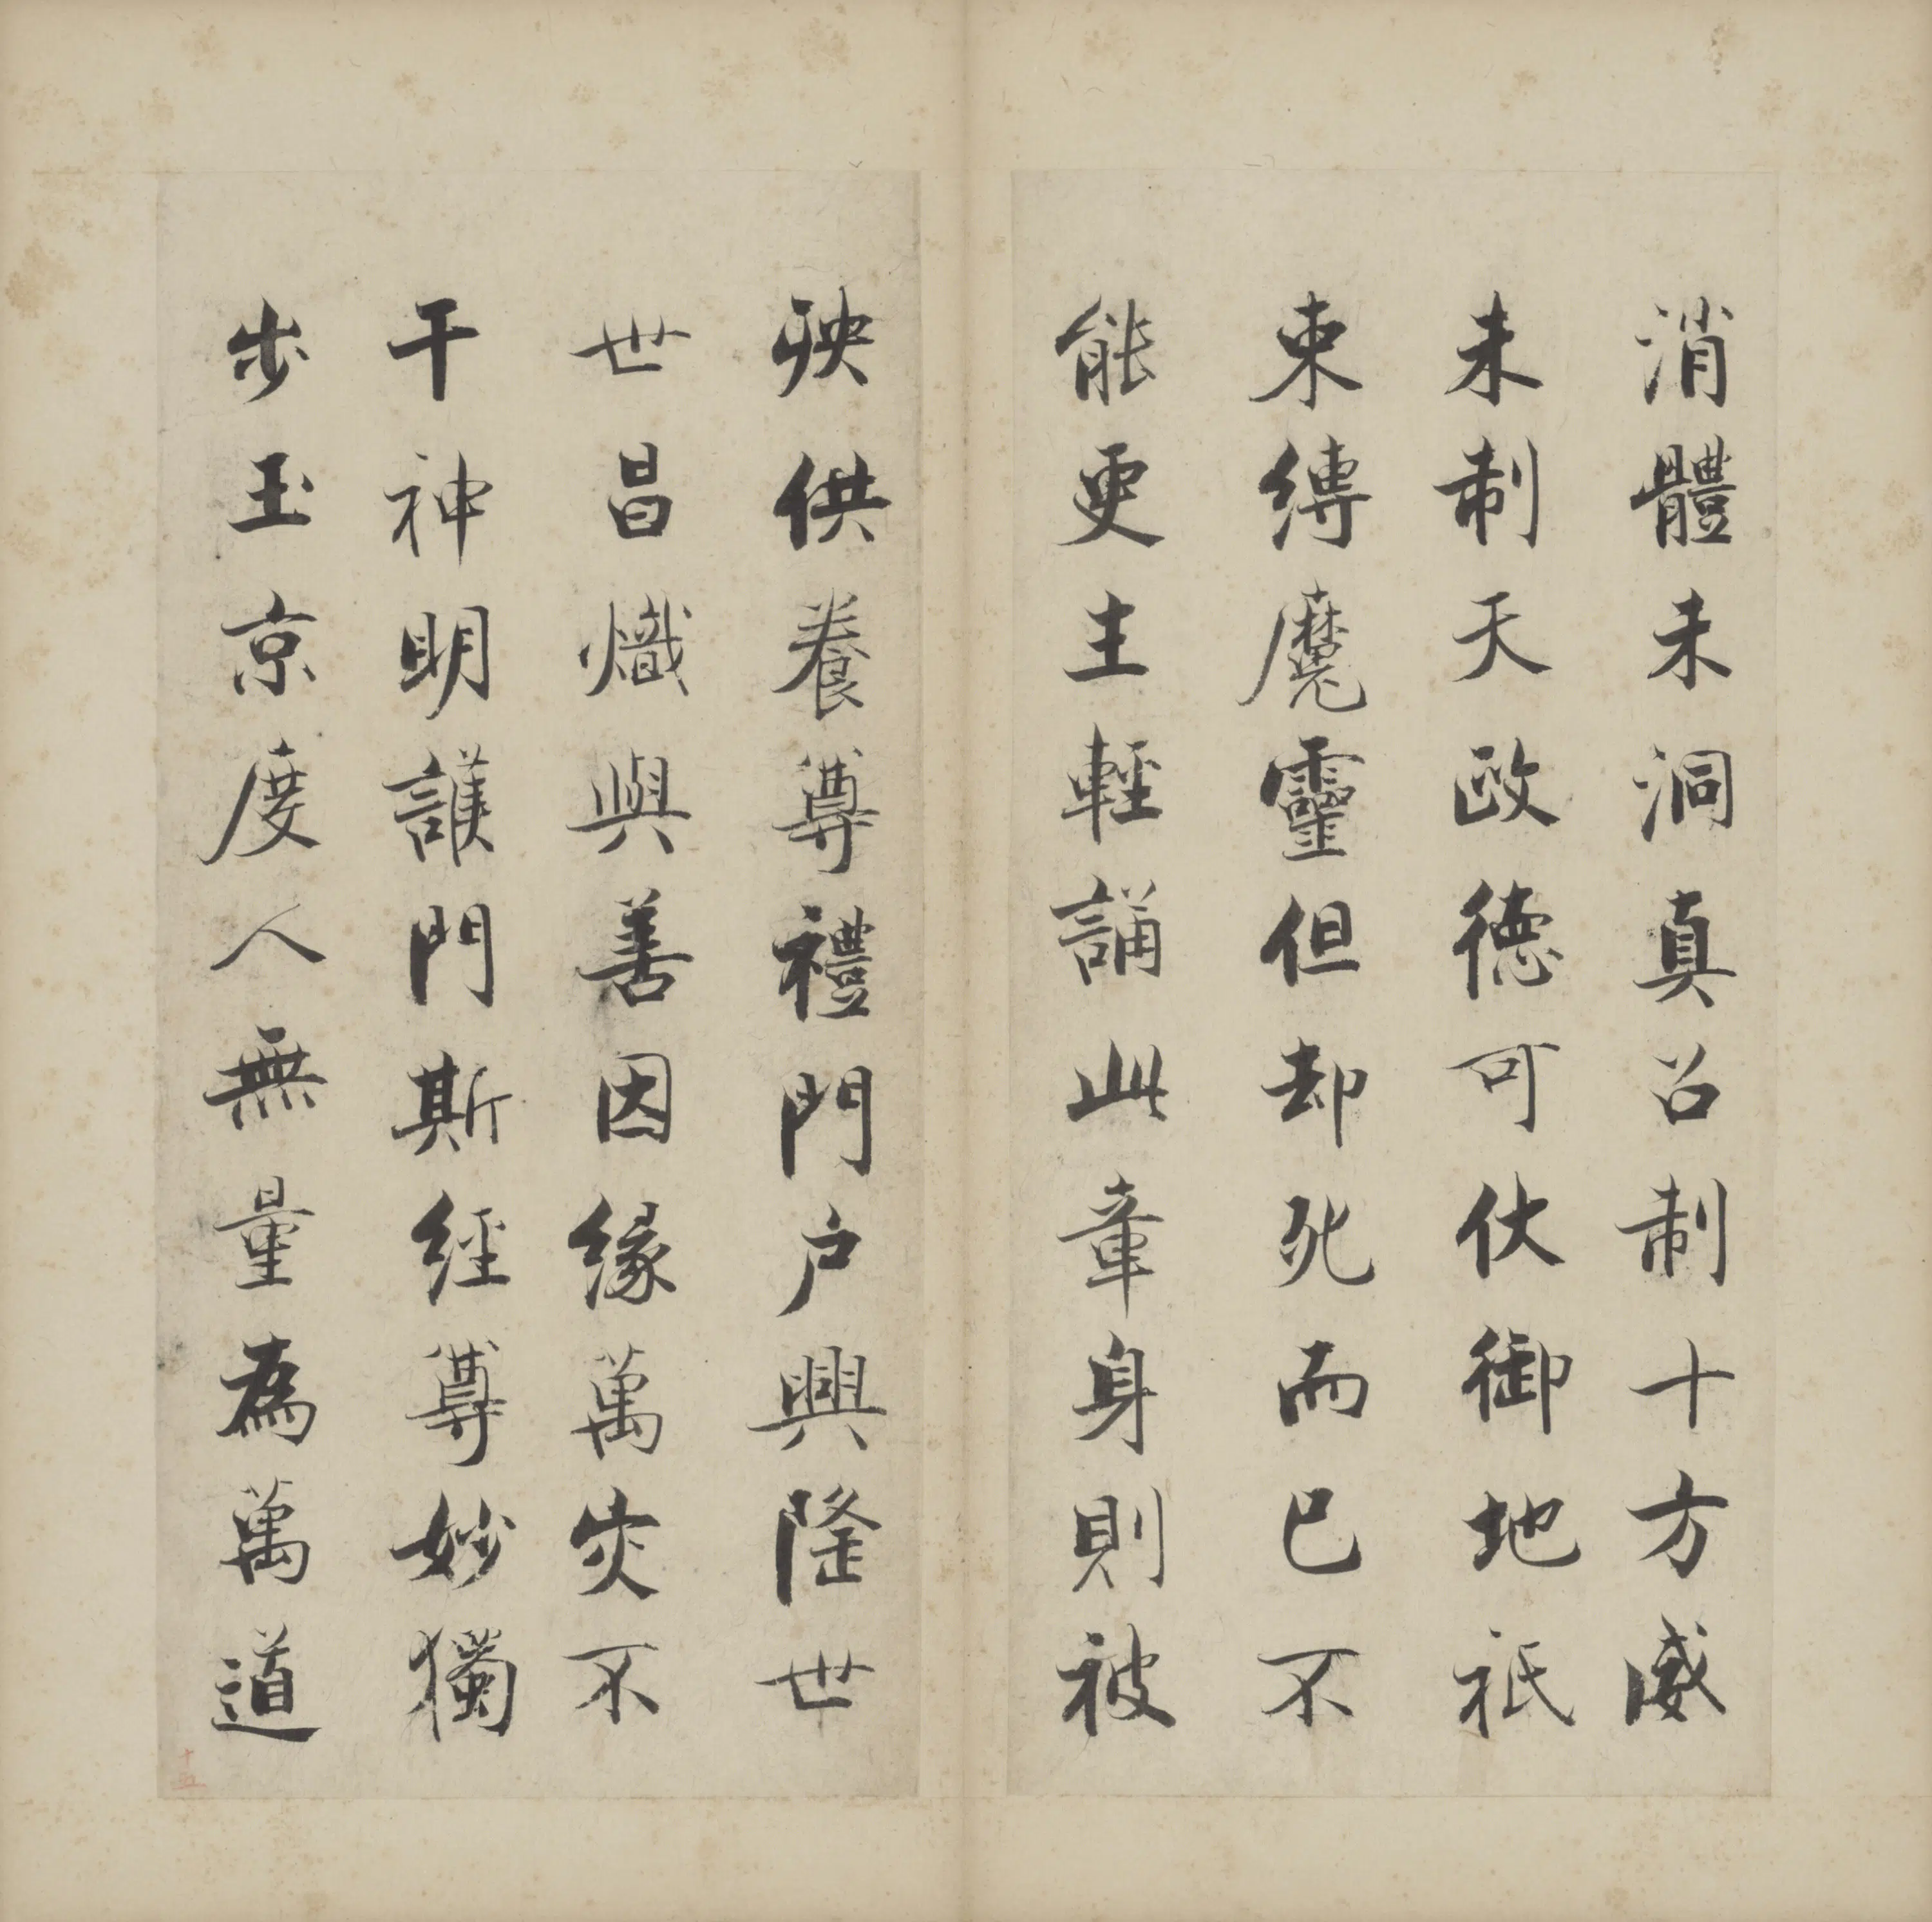 消體未洞真召制十方威
未制天政德可伏御地祇
束縛魔靈但却死而已不
能更生輕誦此章身則被
殃供養尊禮門戶興隆世
世昌熾與善因緣萬灾不
干神明護門斯經尊妙獨
步玉京度人無量為萬道
十五